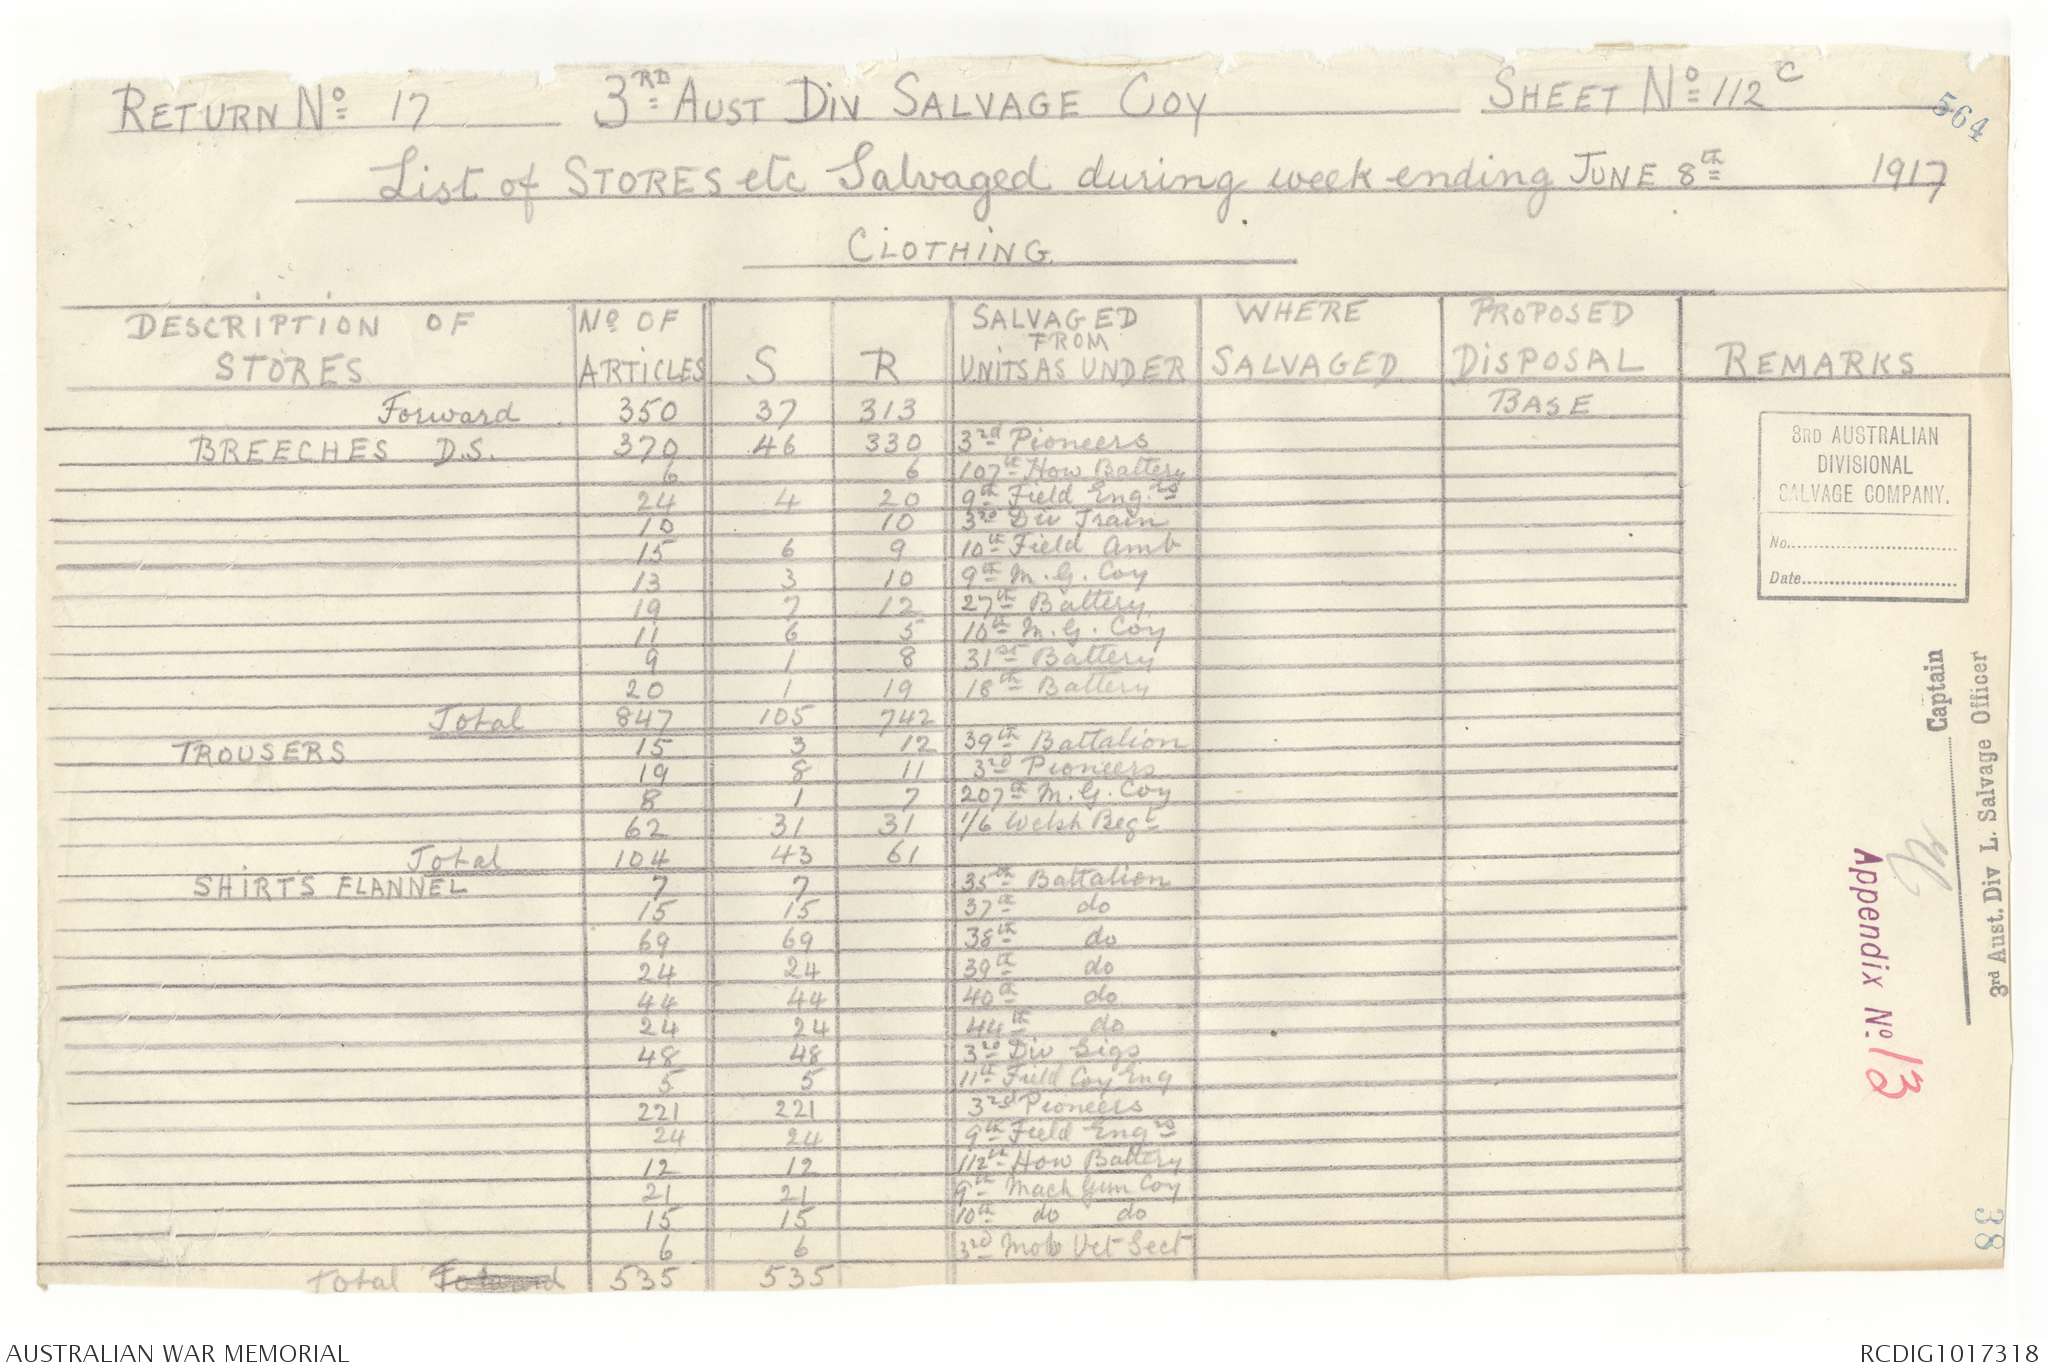 RETURN No 17 3RD AUST DIV SALVAGE COY SHEET No 112C
564
List of STORES etc Salvaged during week ending JUNE 8th 1917
CLOTHING
DESCRIPTION OF STORES No OF ARTICLES S R SALVAGED FROM UNITS AS UNDER WHERE SALVAGED PROPOSED DISPOSAL REMARKS
Forward 350 37 313 BASE
BREECHES D.S. 370 46 330 3rd Pioneers
6 6 107th How Battery
24 4 20 9th Field Engrs
10 10 3rd Div Train
15 6 9 10th Field Amb
13 3 10 9th M.G. Coy
19 7 12 27th Battery
11 6 5 10th M.G. Coy
9 1 8 31st Battery
20 1 19 18th Battery
Total 847 105 742
TROUSERS 15 3 12 39th Battalion
19 8 11 3rd Pioneers
8 1 7 207th M.G. Coy
62 31 31 1/6 Welsh Regt
Total 104 43 61
SHIRTS FLANNEL 7 7 35th Battalion
15 15 37th do
69 69 38th do
24 24 39th do
44 44 40th do
24 24 44th do
48 48 3rd Div Sigs
5 5 11th Field Coy Eng
221 221 3rd Pioneers
24 24 9th Field Engrs
12 12 112th How Battery
21 21 9th Mach Gun Coy
15 15 10th do do
6 6 3rd Mob Vet Sect
Total 535 535
3RD AUSTRALIAN
DIVISIONAL
SALVAGE COMPANY.
No.
Date
Captain
3rd Aust. Div L. Salvage Officer
Appendix No. 13
38
AUSTRALIAN WAR MEMORIAL RCDIG1017318